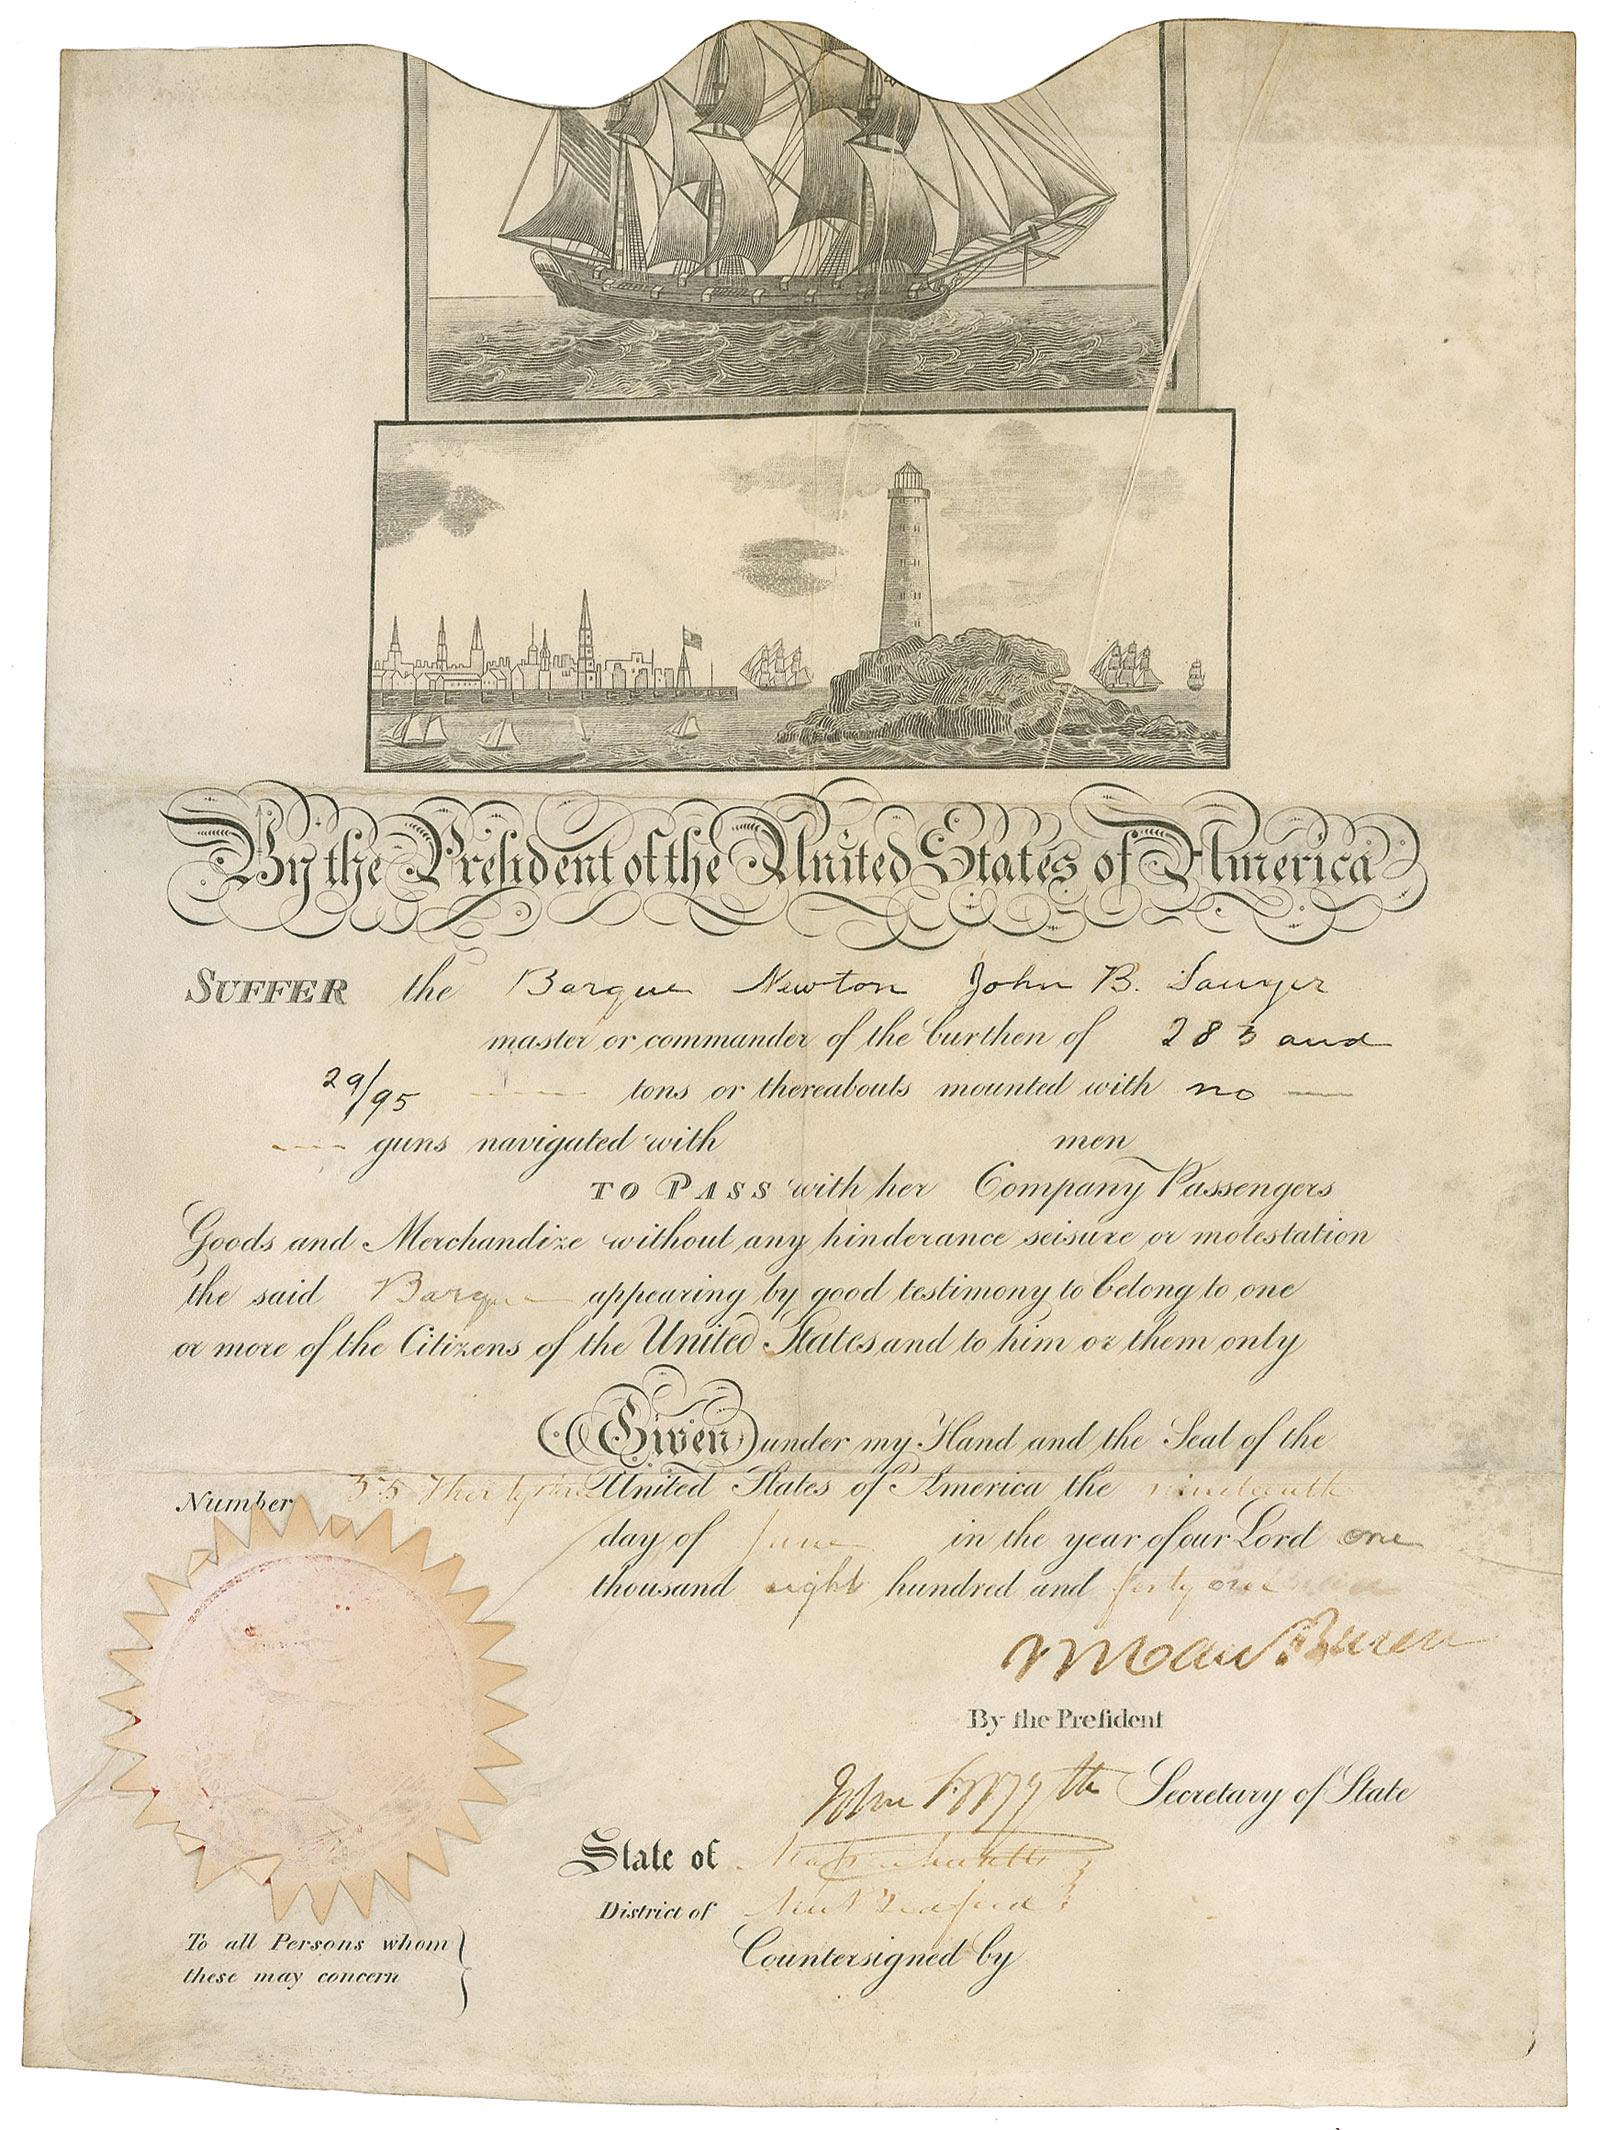 By the President of the United States of America
SUFFER the Barque Newton John B. Sawyer
master or commander of the burthen of 283 and
29/95 tons or thereabouts mounted with no
guns navigated with men
TO PASS with her Company Passengers
Goods and Merchandize without any hinderance seisure or molestation
the said Barque appearing by good testimony to belong to one
or more of the Citizens of the United States and to him or them only
Given under my Hand and the Seal of the
Number United States of America the nineteenth
day of June in the year of our Lord one
thousand eight hundred and forty one
M Van Buren
By the President
John Forsyth Secretary of State
State of Massachusetts
District of New Bedford
Countersigned by
To all Persons whom
these may concern